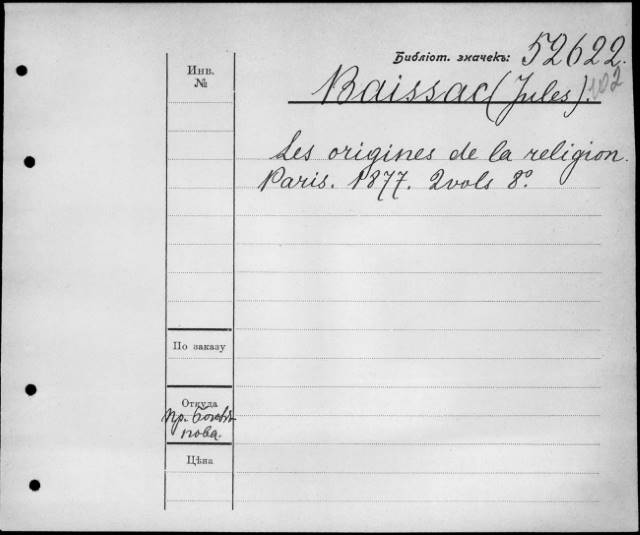 Библіот. значекъ: 52622.
102
Инв.
№
Baissac (Jules).
Les origines de la religion.
Paris. 1877. 2vols 8º.
По заказу
Откуда
пр.
Цѣна